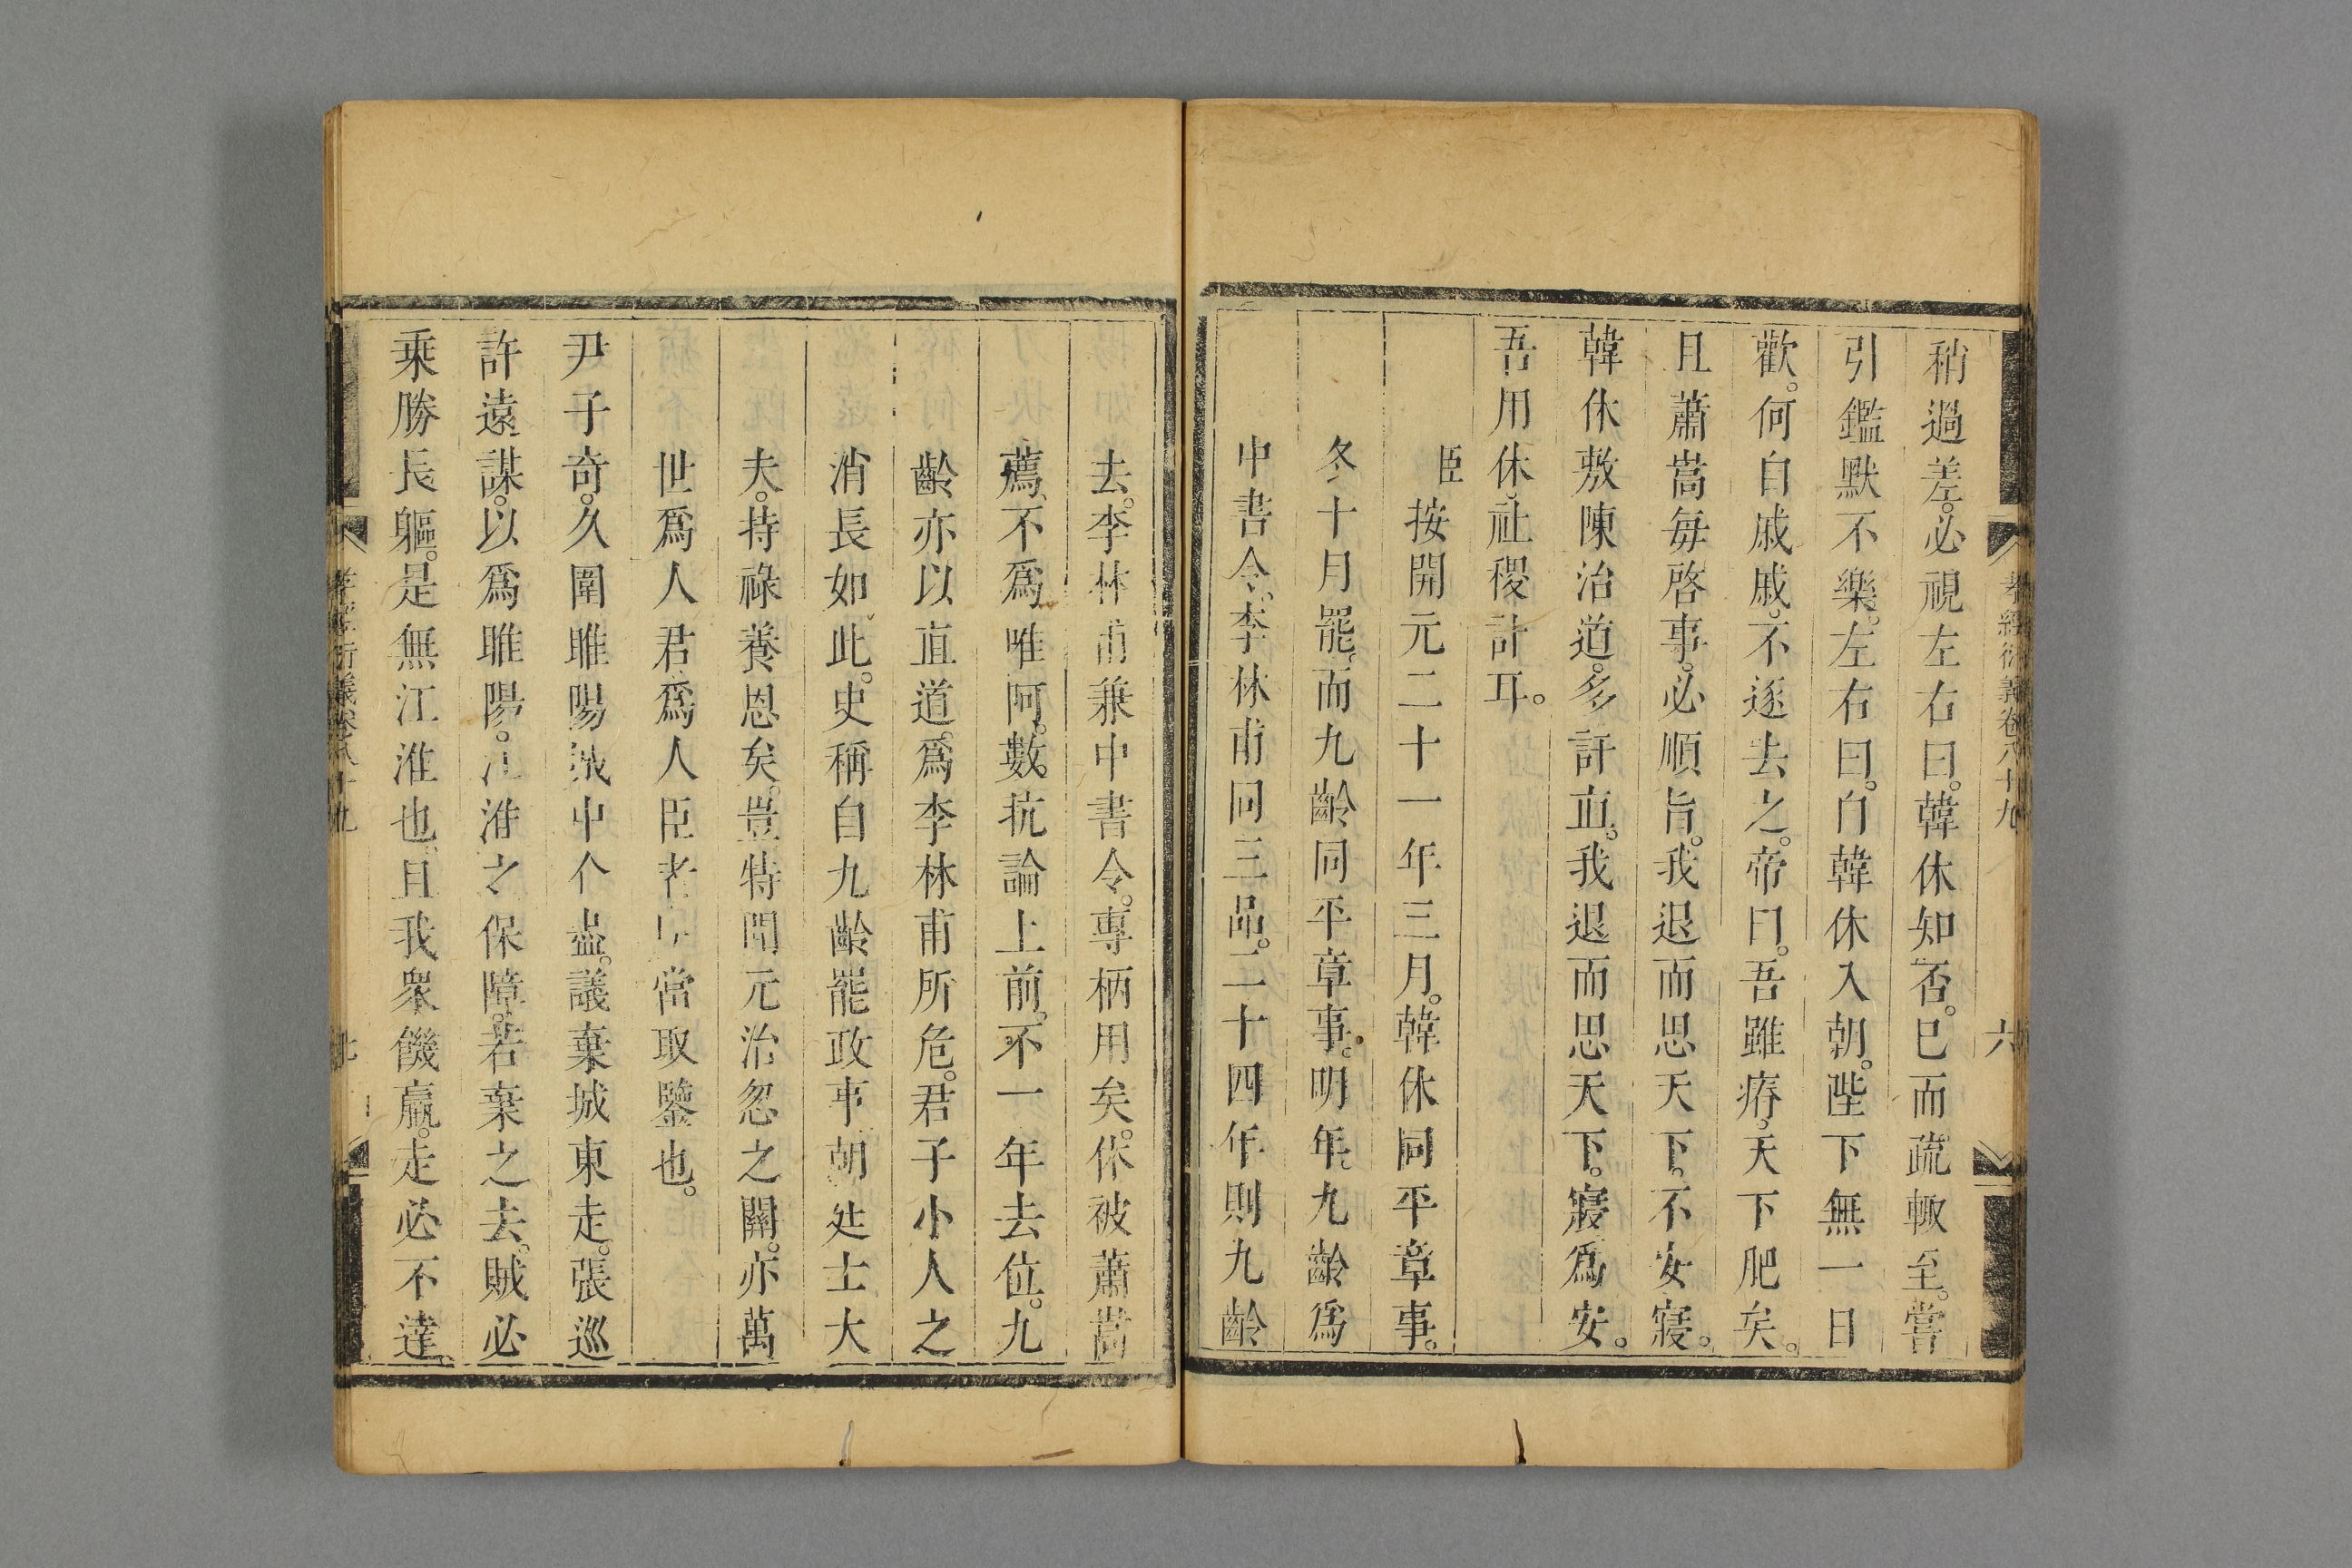 孝經衍義卷八十九 六
稍過差。必視左右曰。韓休知否。已而疏輙至。嘗
引鑑默不樂。左右曰。自韓休入朝。陛下無一日
歡。何自戚戚。不逐去之。帝曰。吾雖瘠、天下肥矣。
且蕭嵩每啓事。必順旨。我退而思天下。不安寢。
韓休敷陳治道。多訐直。我退而思天下。寢爲安。
吾用休、社稷計耳。
臣按開元二十一年三月。韓休同平章事。
冬十月罷、而九齡同平章事。明年、九齡爲
中書令、李林甫同三品。二十四年則九齡
去。李林甫兼中書令。專柄用矣。休被蕭嵩
薦、不爲唯阿。數抗論上前。不一年去位。九
齡亦以直道。爲李林甫所危。君子小人之
消長如此。史稱自九齡罷政事、朝廷士大
夫。持祿養恩矣。豈特開元治忽之關。亦萬
世爲人君爲人臣者 當取鑒也。
尹子奇。久圍雎陽。城中食盡。議棄城東走。張巡
許遠謀。以爲雎陽。江淮之保障。若棄之去。賊必
乘勝長軀。是無江淮也、且我衆饑羸。走必不達、
孝經衍義卷八十九 七